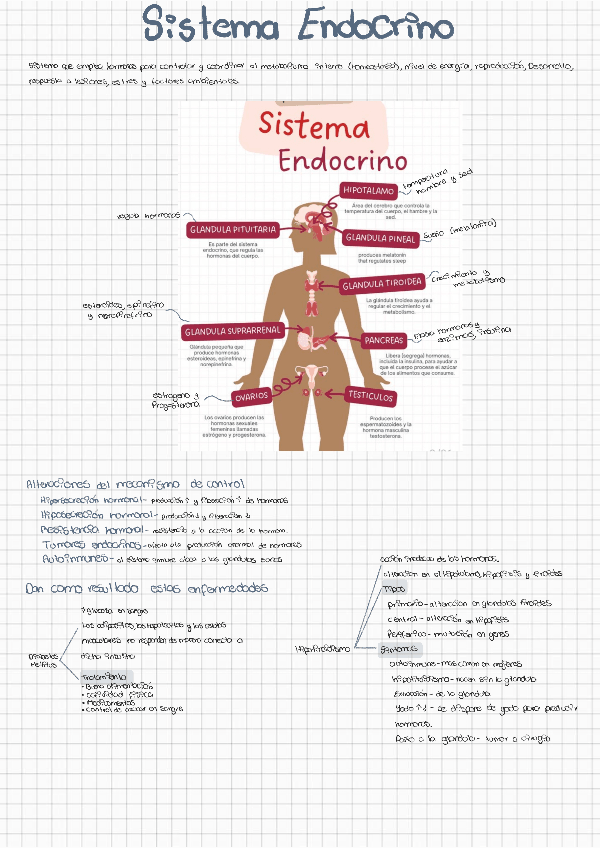 Sistema Endocrino
Sistema que emplea hormonas para controlar y coordinar el metabolismo interno (homeostasis), nivel de energía, reproducción, Desarrollo,
respuesta a lesiones, estrés y factores ambientales.
Sistema
Endocrino
HIPOTALAMO
temperatura
hambre y sed
Área del cerebro que controla la
temperatura del cuerpo, el hambre y la
sed.
regula hormonas
GLANDULA PITUITARIA
Es parte del sistema
endocrino, que regula las
hormonas del cuerpo.
GLANDULA PINEAL
Sueño (melatonina)
produces melatonin
that regulates sleep
GLANDULA TIROIDEA
Crecimiento y
metabolismo
La glándula tiroidea ayuda a
regular el crecimiento y el
metabolismo.
esteroides, epinefrina
y norepinefrina
GLANDULA SUPRARRENAL
Glándula pequeña que
produce hormonas
esteroideas, epinefrina y
norepinefrina.
PANCREAS
hormonas y
enzimas, insulina
Libera (segrega) hormonas,
incluida la insulina, para ayudar a
que el cuerpo procese el azúcar
de los alimentos que consume.
estrogeno y
Progesterona
OVARIOS
Los ovarios producen las
hormonas sexuales
femeninas llamadas
estrógeno y progesterona.
TESTICULOS
Producen los
espermatozoides y la
hormona masculina
testosterona.
Alteraciones del mecanismo de control
Hipersecreción hormonal - producción ↑ y liberación ↑ de hormonas
Hiposecreción hormonal - producción ↓ y liberación ↓
Resistencia hormonal - resistencia a la acción de la hormona
Tumores endocrinos - a la producción anormal de hormonas
Autoinmunes - el sistema inmune ataca a las glandulas sanas
Dan como resultado estas enfermedades
Diabetes
Mellitus
↑ glucosa en sangre
Los adipocitos, los hepatocitos y las celulas
musculares no responden de manera correcta a
dicha insulina
Tratamiento
• Buena alimentación
• actividad fisica
• Medicamentos
• Control de azucar en sangre
Hipotiroidismo
acción inadecuada de las hormonas,
alteracion en el Hipotalamo, Hipofisis y tiroides
Tipos
primario - alteracion en glandulas tiroides
central - alteración en Hipofisis
Periferico - mutación en genes
autoinmune - mas comun en mujeres
hipotiroidismo - nacen sin la glandula
Extracción - de la glandula
Yodo ↑↓ - se dispone de yodo para producir
hormonas.
Daño a la glandula - tumor o cirugia